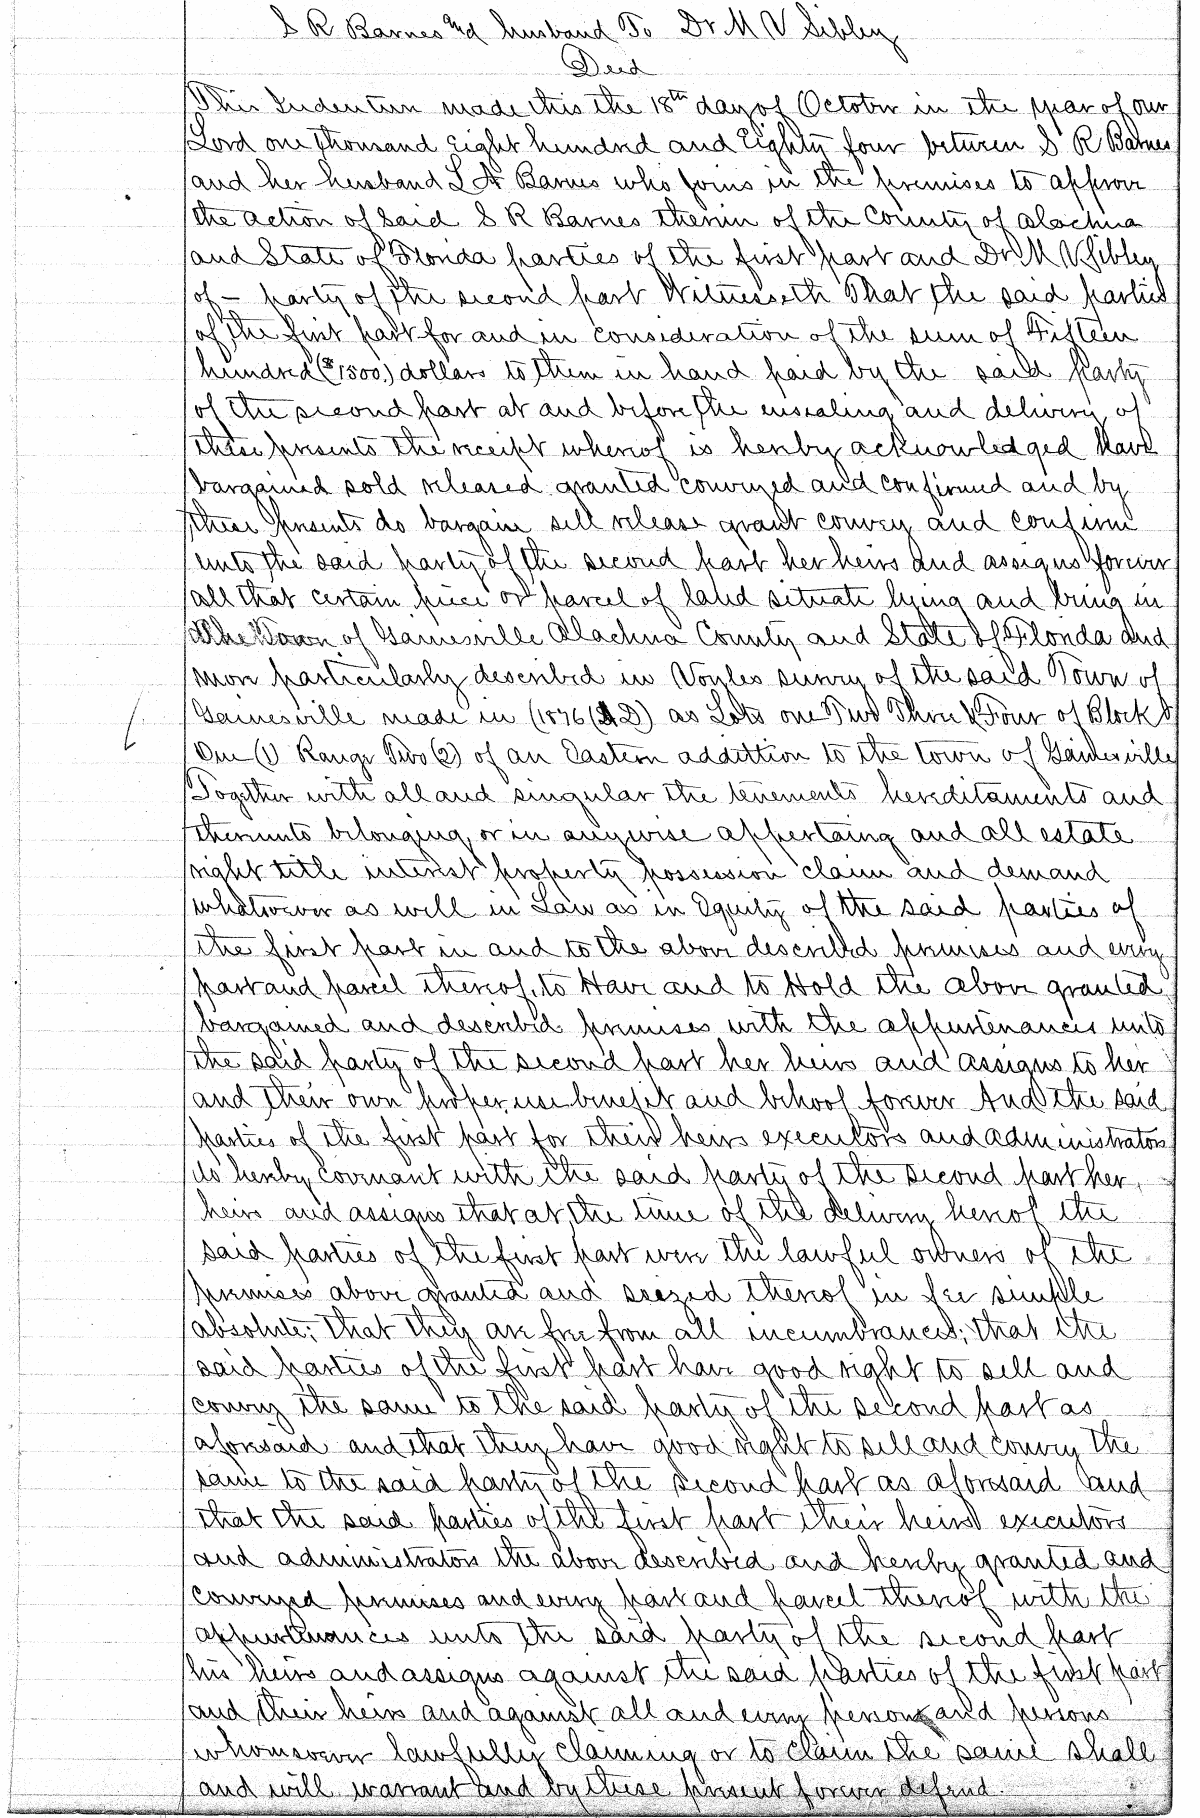 S R Barnes and husband To Dr M V Sibley
Deed
This Indenture made this the 18th day of October in the year of our
Lord one thousand Eight hundred and Eighty four between S R Barnes
and her husband L A Barnes who joins in the premises to approve
the action of said S R Barnes therein of the County of Alachua
and State of Florida parties of the first part and Dr M V Sibley
of — party of the second part Witnesseth That the said parties
of the first part for and in consideration of the sum of Fifteen
hundred ($1500.) dollars to them in hand paid by the said party
of the second part at and before the ensealing and delivery of
these presents the receipt whereof is hereby acknowledged have
bargained sold released granted conveyed and confirmed and by
these presents do bargain sell release grant convey and confirm
unto the said party of the second part her heirs and assigns forever
all that certain piece or parcel of land situate lying and being in
the Town of Gainesville Alachua County and State of Florida and
more particularly described in Voyles survey of the said Town of
Gainesville made in (1876 (A D) as Lots one Two Three & Four of Block
One (1) Range Two (2) of an Eastern addittion to the town of Gainesville
Together with all and singular the tenements hereditaments and
thereunto belonging or in anywise appertaing and all estate
right title interest property possession claim and demand
whatsoever as well in Law as in Equity of the said parties of
the first part in and to the above described premises and every
part and parcel thereof, to Have and to Hold the above granted
bargained and described premises with the appurtenances unto
the said party of the second part her heirs and assigns to her
and their own proper use benefit and behoof forever And the said
parties of the first part for their heirs executors and administrators
do hereby covenant with the said party of the second part her
heirs and assigns that at the time of the delivery hereof the
said parties of the first part were the lawful owners of the
premises above granted and seezed thereof in fee simple
absolute; that they are free from all incumbrances; that the
said parties of the first part have good right to sell and
convey the same to the said party of the second part as
aforesaid and that they have good right to sell and convey the
same to the said party of the second part as aforesaid and
that the said parties of the first part their heirs executors
and administrators the above described and hereby granted and
conveyed premises and every part and parcel thereof with the
appurtenances unto the said party of the second part
his heirs and assigns against the said parties of the first part
and their heirs and against all and every person and persons
whomsoever lawfully claiming or to claim the same shall
and will warrant and by these present forever defend.